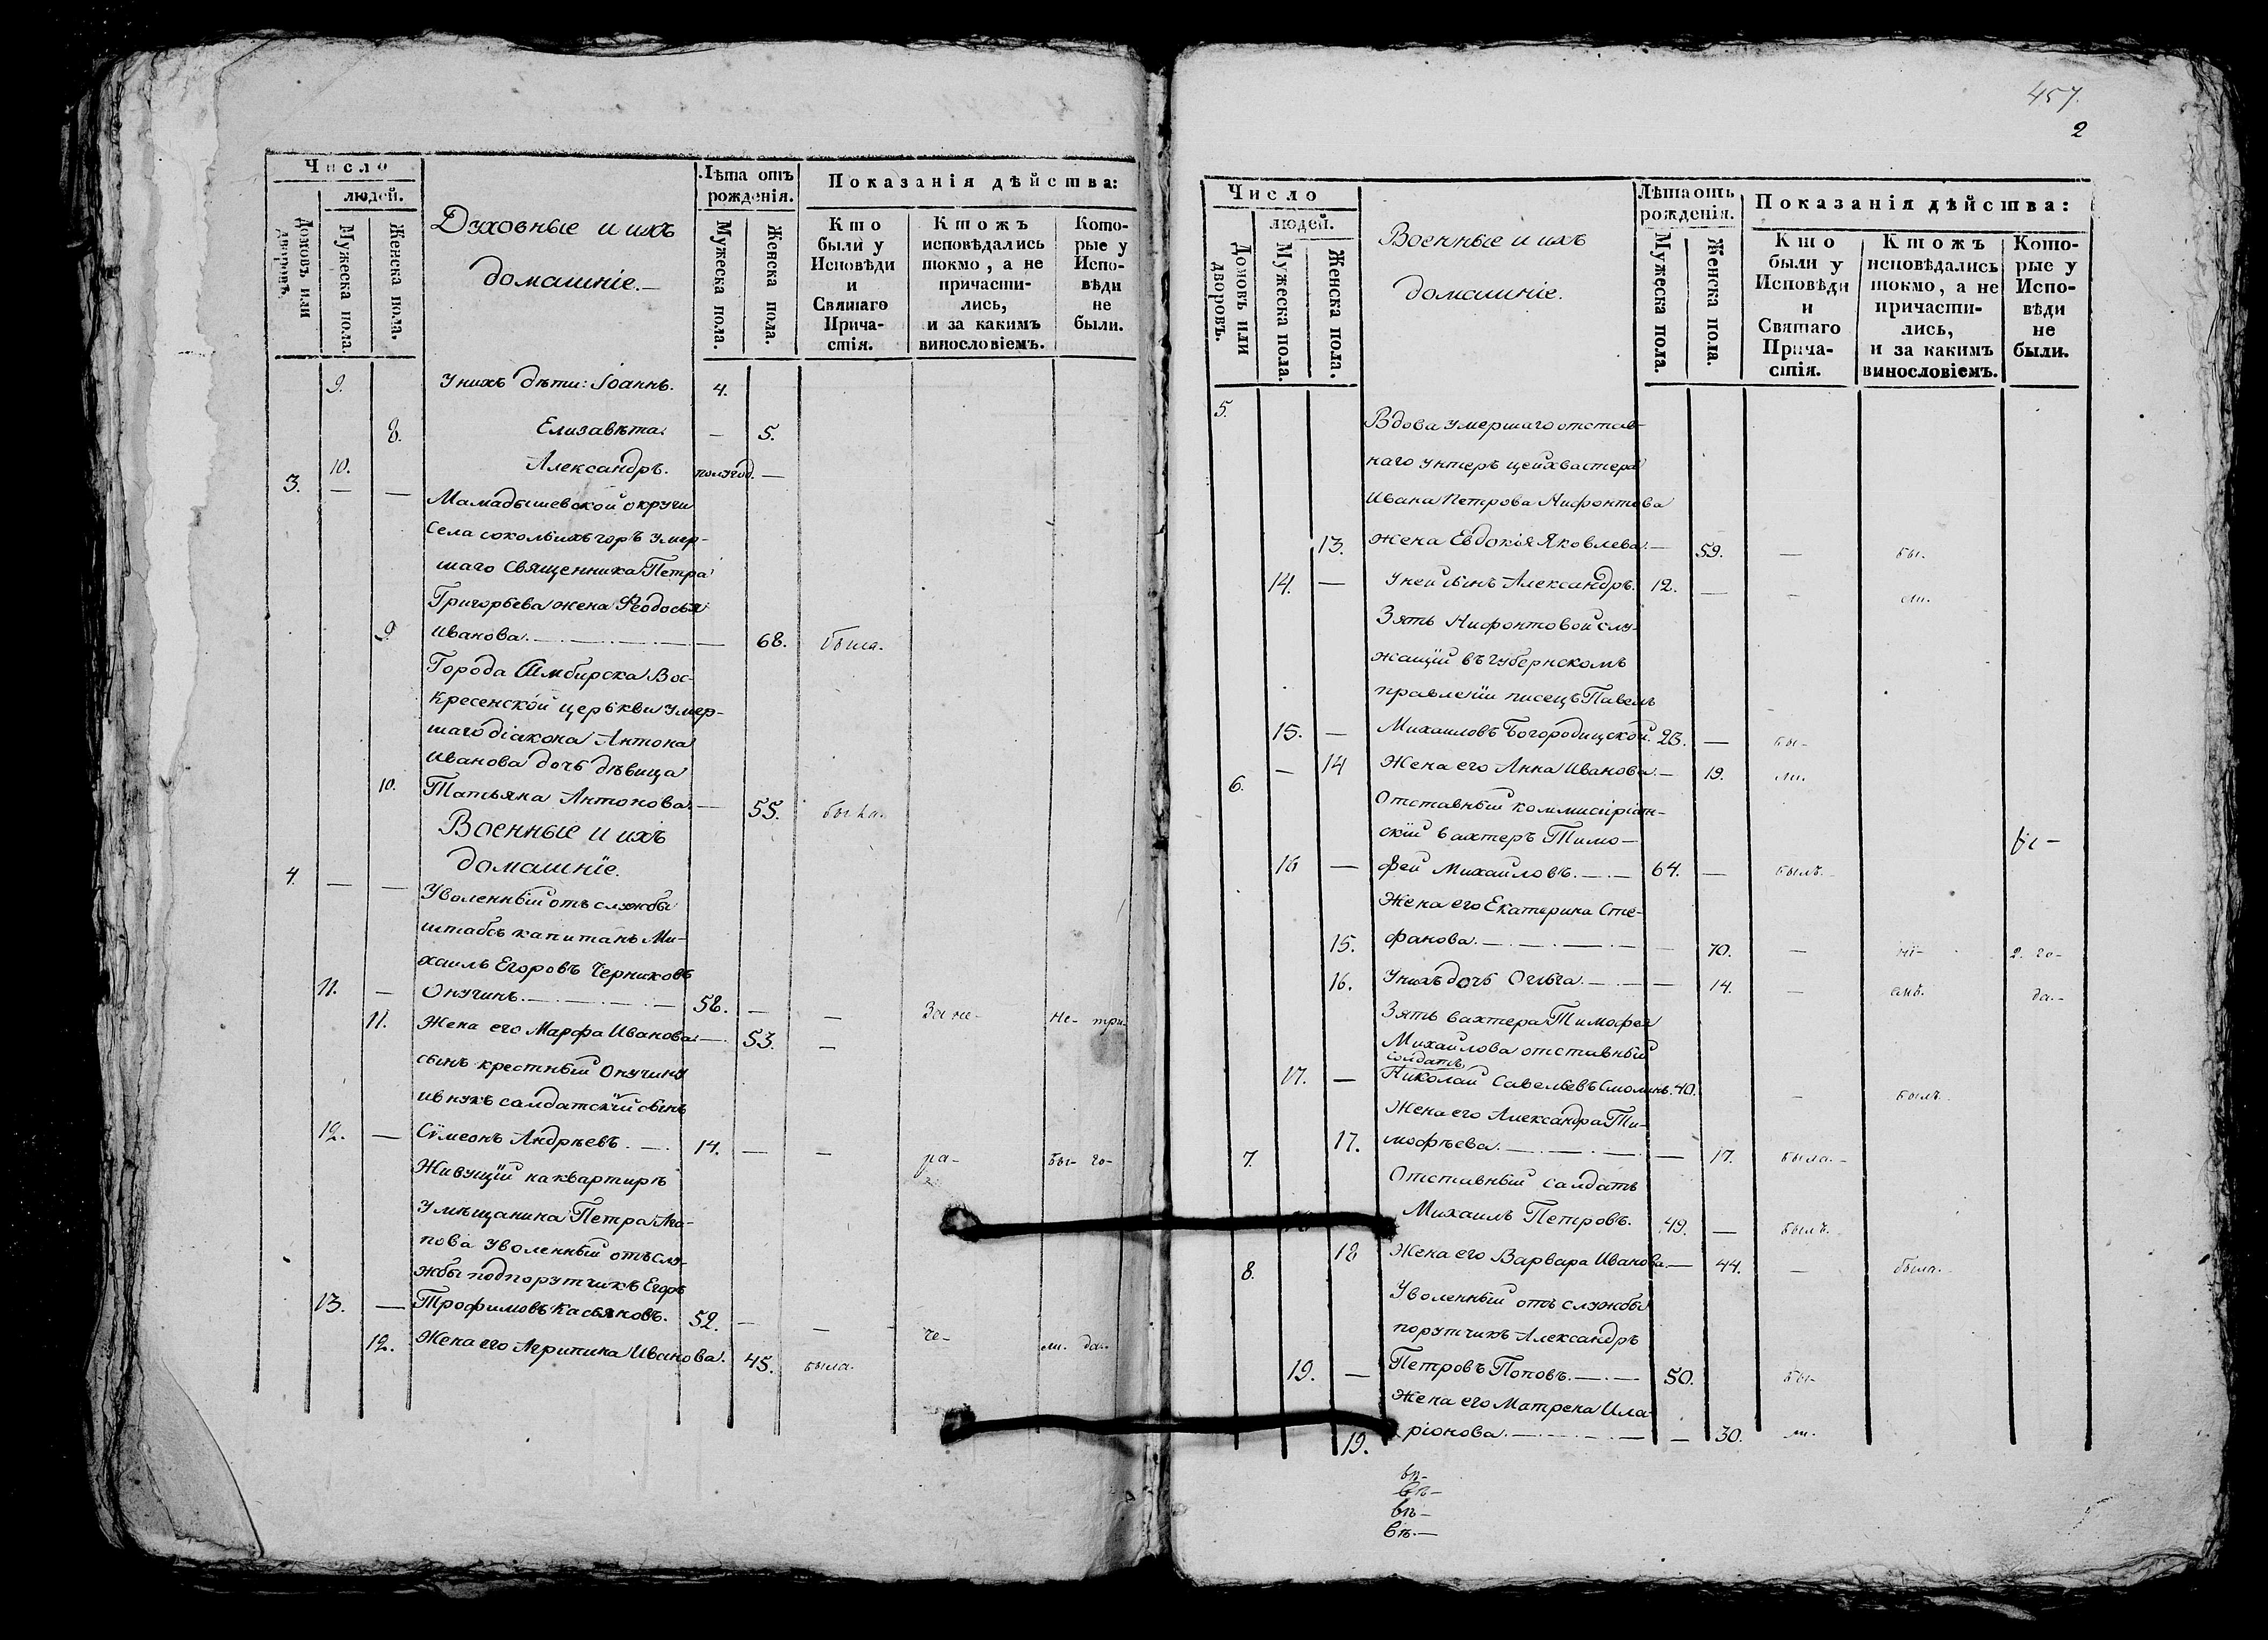 Число
людей.
Домовъ или дворовъ.
Мужеска пола.
Женска пола.
Духовные и ихъ
домашніе.—
Лѣта отъ
рожденія.
Мужеска пола.
Женска пола.
Показанія дѣйства:
Кто
были у
Исповѣди
и
Святаго
Прича-
стія.
Ктожъ
исповѣдались
токмо, а не
причасти-
лись,
и за какимъ
винословіемъ.
Кото-
рые у
Испо-
вѣди
не
были.
9. У нихъ дѣти: Іоаннъ. 4.
8. Елизавѣта. — 5.
10. Александръ. полугод. —
3. — — Мамадышевской округи
села сокольихъ горъ умер-
шаго Священника Петра
Григорьева жена Ѳеодосья
9. Иванова. — 68. была.
Города Симбирска Вос-
кресенской церькви умер-
шаго діакона Антона
Иванова дочь дѣвица
10. Татьяна Антонова. — 55. была.
Военные и ихъ
домашніе.
4. — — Уволенный отъ службы
штабсъ капитанъ Ми-
хаилъ Егоровъ Черниковъ
11. — Онучинъ. — 58. — — За не- не- три-
11. Жена его Марфа Иванова. — 53. —
сынъ крестный Онучину
и внукъ салдатскій сынъ
12. — Сѵмеонъ Андрѣевъ. — 14. — — ра- бы- го-
Живущій на квартирѣ
у мѣщанина Петра Ага-
пова уволенный отъ слу-
жбы подпорутчикъ Егоръ
13. — Трофимовъ Касьяновъ. 52. — — че- ли. да.
12. Жена его Агрипина Иванова. 45. была.
457.
2
Число
людей.
Домовъ или дворовъ.
Мужеска пола.
Женска пола.
Военные и ихъ
домашніе.
Лѣта отъ
рожденія.
Мужеска пола.
Женска пола.
Показанія дѣйства:
Кто
были у
Исповѣди
и
Святаго
Прича-
стія.
Ктожъ
исповѣдались
токмо, а не
причасти-
лись,
и за какимъ
винословіемъ.
Кото-
рые у
Испо-
вѣди
не
были.
5. Вдова умершаго отстав-
наго унтеръ цейхвастера
Ивана Петрова Нифонтова
13. жена Евдокія Яковлева. — 59. — бы.
14. — У ней сынъ Александръ. 12. — — ли.
Зять Нифонтовой слу-
жащій въ губернскомъ
правленіи писецъ Павелъ
15. — Михаиловъ Богородицской. 23. — бы-
— 14 Жена его Анна Иванова. — 19. ли.
6. Отставный коммисіріан-
скій вахтеръ Тимо-
16 — фей Михайловъ. — 64. — былъ.
Жена его Екатерина Сте-
15. фанова. — 70. — 2. го-
16. У нихъ дочь Ольга. — 14. — да.-
Зять вахтера Тимофея
Михайлова отставный
солдатъ
17. — Николай Савельевъ Смолинъ. 40. — былъ.
Жена его Александра Ти-
17. мофѣева. — 17. была.-
7. Отставный салдатъ
Михаилъ Петровъ. 49. — былъ.
18 Жена его Варвара Иванова. — 44. — была.
8. Уволенный отъ службы
порутчикъ Александръ
19. — Петровъ Поповъ. — 50. бы-
Жена его Матрена Ила-
19. ріонова. — 30. ли.